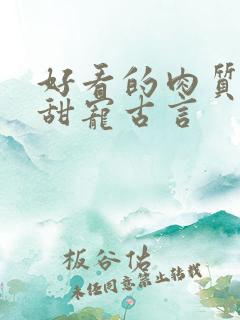 好看的肉質
甜寵古言
板谷佑
未经同意禁止转载